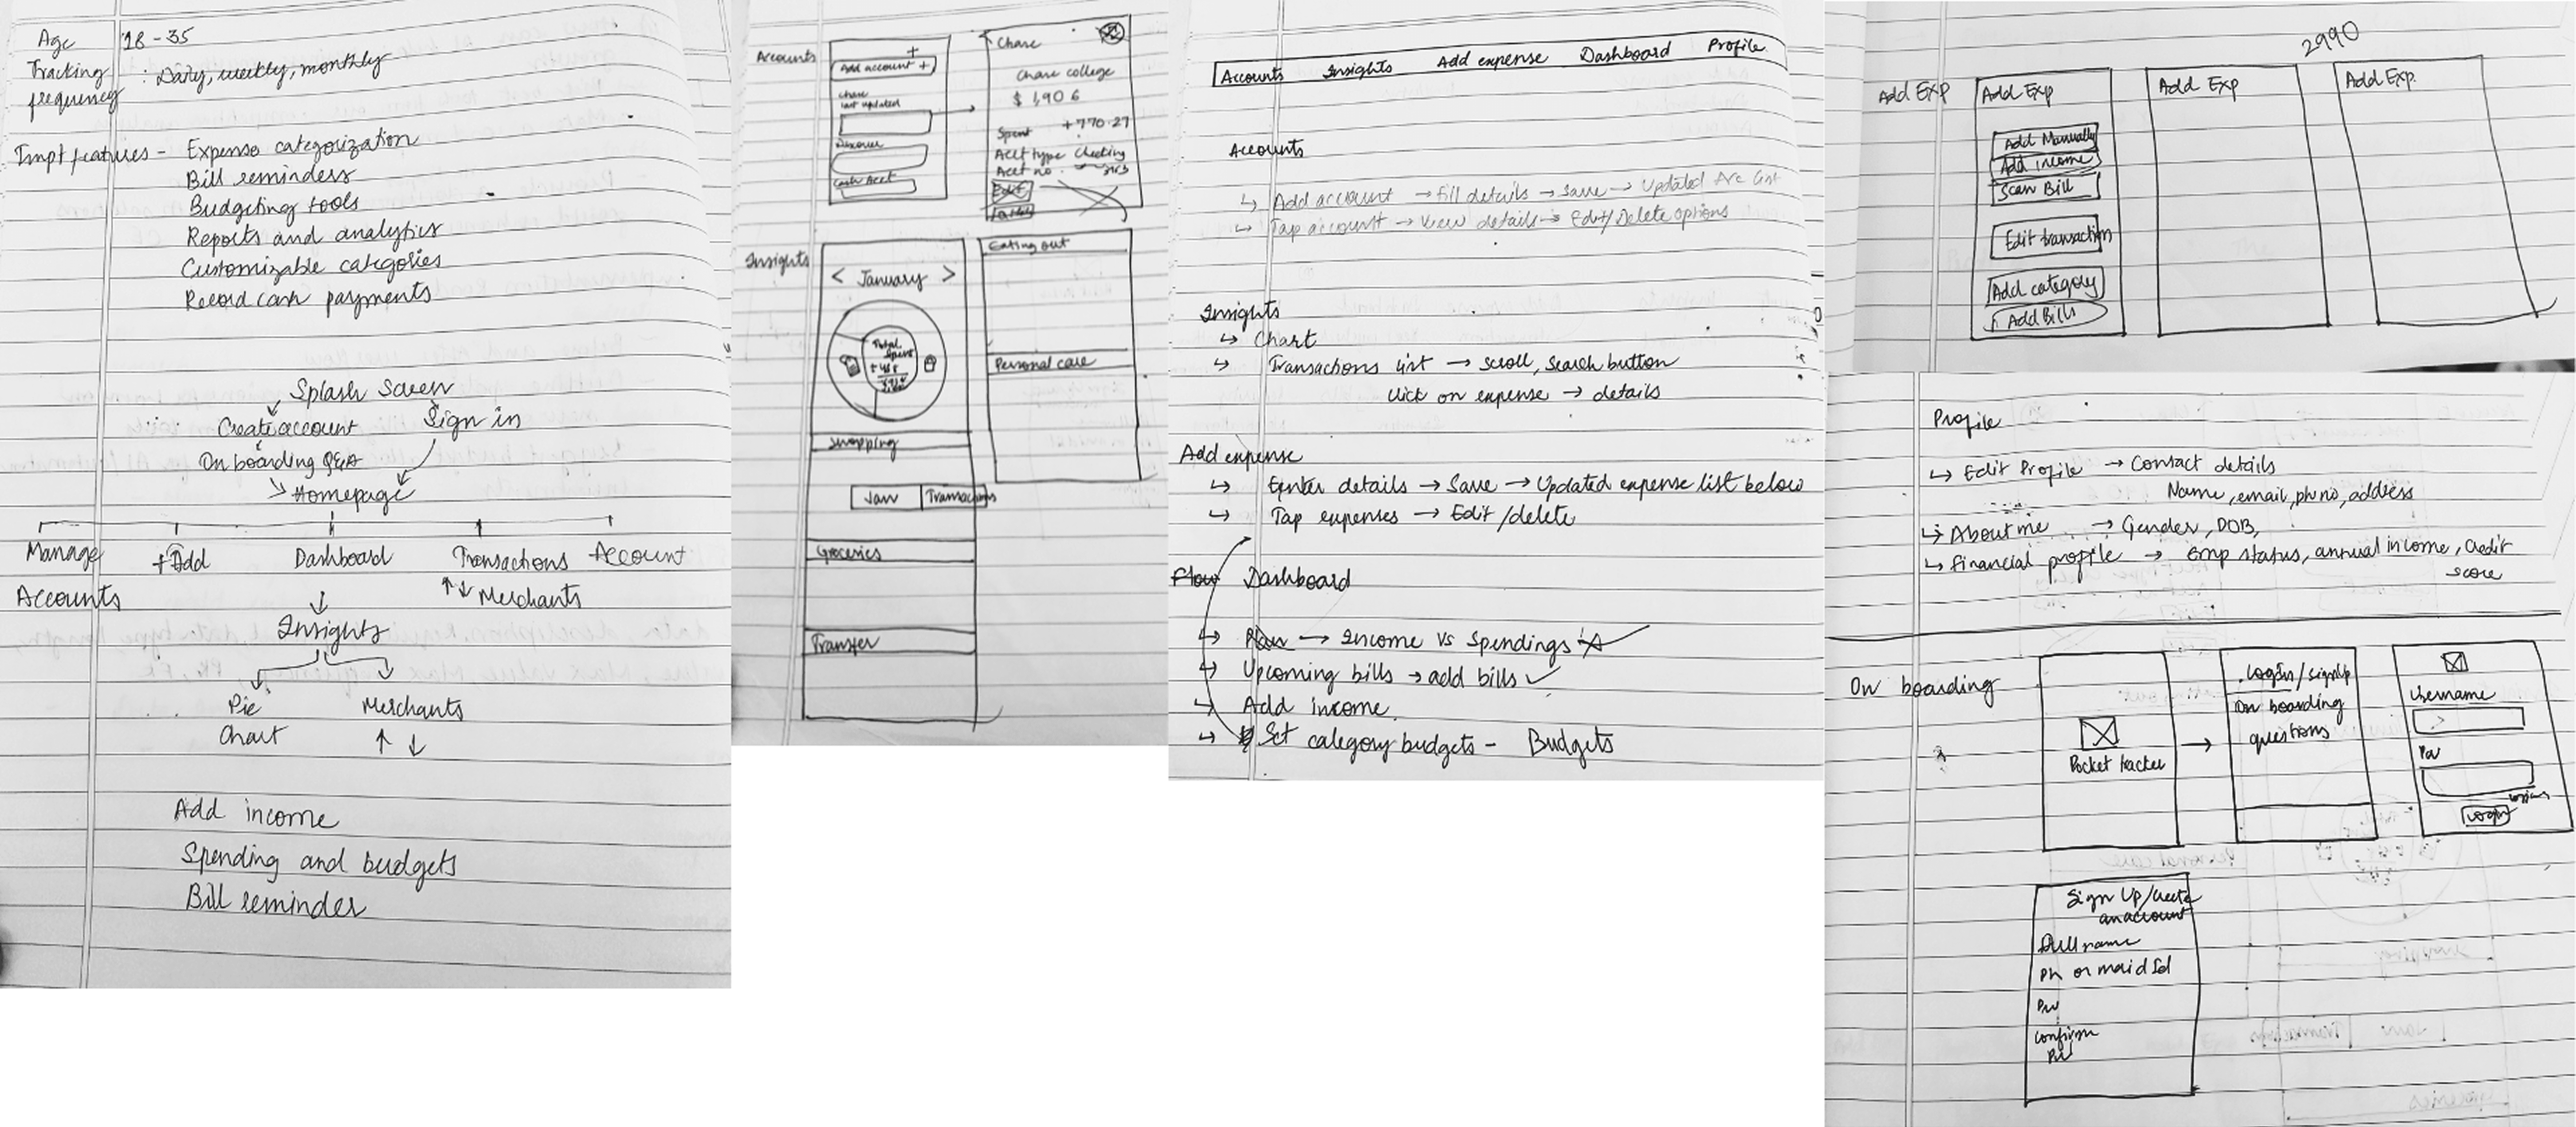 Age 18 - 35
Tracking frequency : Daily, weekly, monthly
Impt features - Expense categorization
Bill reminders
Budgeting tools
Reports and analytics
Customizable categories
Record cash payments
Splash Screen
Create account Sign in
On boarding Q&A
Homepage
Manage Accounts
+ Add
Dashboard
Transactions
Account
↑↓ Merchants
Insights
Pie Chart
Merchants
↑ ↓
Add income
Spending and budgets
Bill reminder
Accounts
+
Add account +
Chase
last updated
Discover
Cash Acct
Chase
Chase college
$ 1,906
Spent +770.27
Acct type Checking
Acct no.
Edit
Insights
< January >
Total spent
Shopping
Jan Transactions
Groceries
Transfer
Eating out
Personal care
Accounts Insights Add expense Dashboard Profile
Accounts
↳ Add account → Fill details → Save → Updated Acc list
↳ Tap account → View details → Edit/Delete options
Insights
↳ Chart
↳ Transactions list → scroll, Search button
click on expense → details
Add expense
↳ Enter details → Save → Updated expense list below
↳ Tap expenses → Edit /delete
Flow Dashboard
↳ Plan → Income vs Spendings
↳ Upcoming bills → add bills ✓
↳ Add income
↳ Set category budgets - Budgets
2990
Add Exp
Add Exp
Add Manually
Add income
Scan Bill
Edit transaction
Add category
Add Bills
Add Exp
Add Exp.
Profile
↳ Edit Profile → Contact details
Name, email, ph no, address
↳ About me → Gender, DOB,
↳ Financial profile → Emp status, annual income, Credit
score
On boarding
Pocket tracker
Login/signUp
On boarding
questions
Username
Pw
Login
Sign Up/Create
an account
Full name
Ph or mail Id
Pw
Confirm
Pw